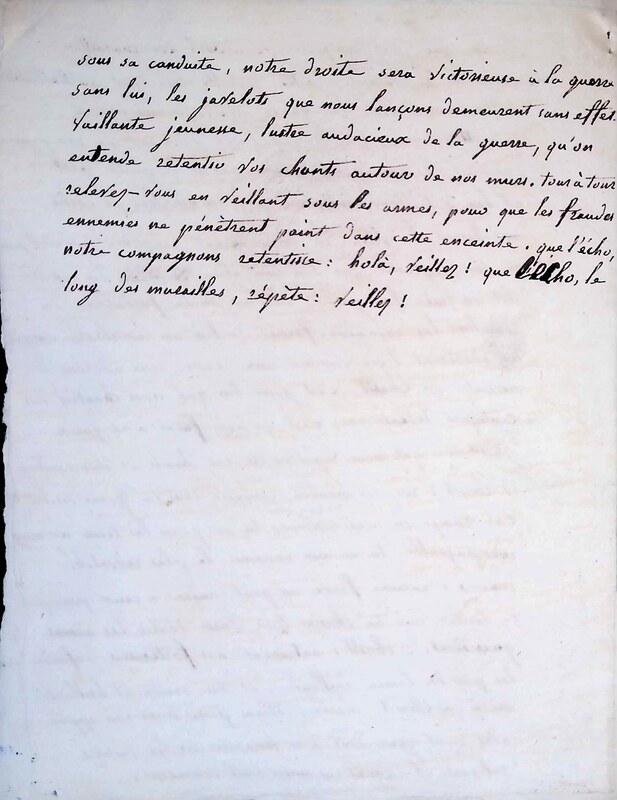 sous sa conduite, notre droite sera victorieuse à la guerre
sans lui, les javelots que nous lançons demeurent sans effet.
Vaillante jeunesse, lustre audacieux de la guerre, qu'on
entende retentir vos chants autour de nos murs. tour à tour
relevez-vous en veillant sous les armes, pour que les fraudes
ennemies ne pénètrent point dans cette enceinte. que l'écho,
notre compagnons retentisse : holà, veillez ! que l'écho, le
long des murailles, répète : veillez !